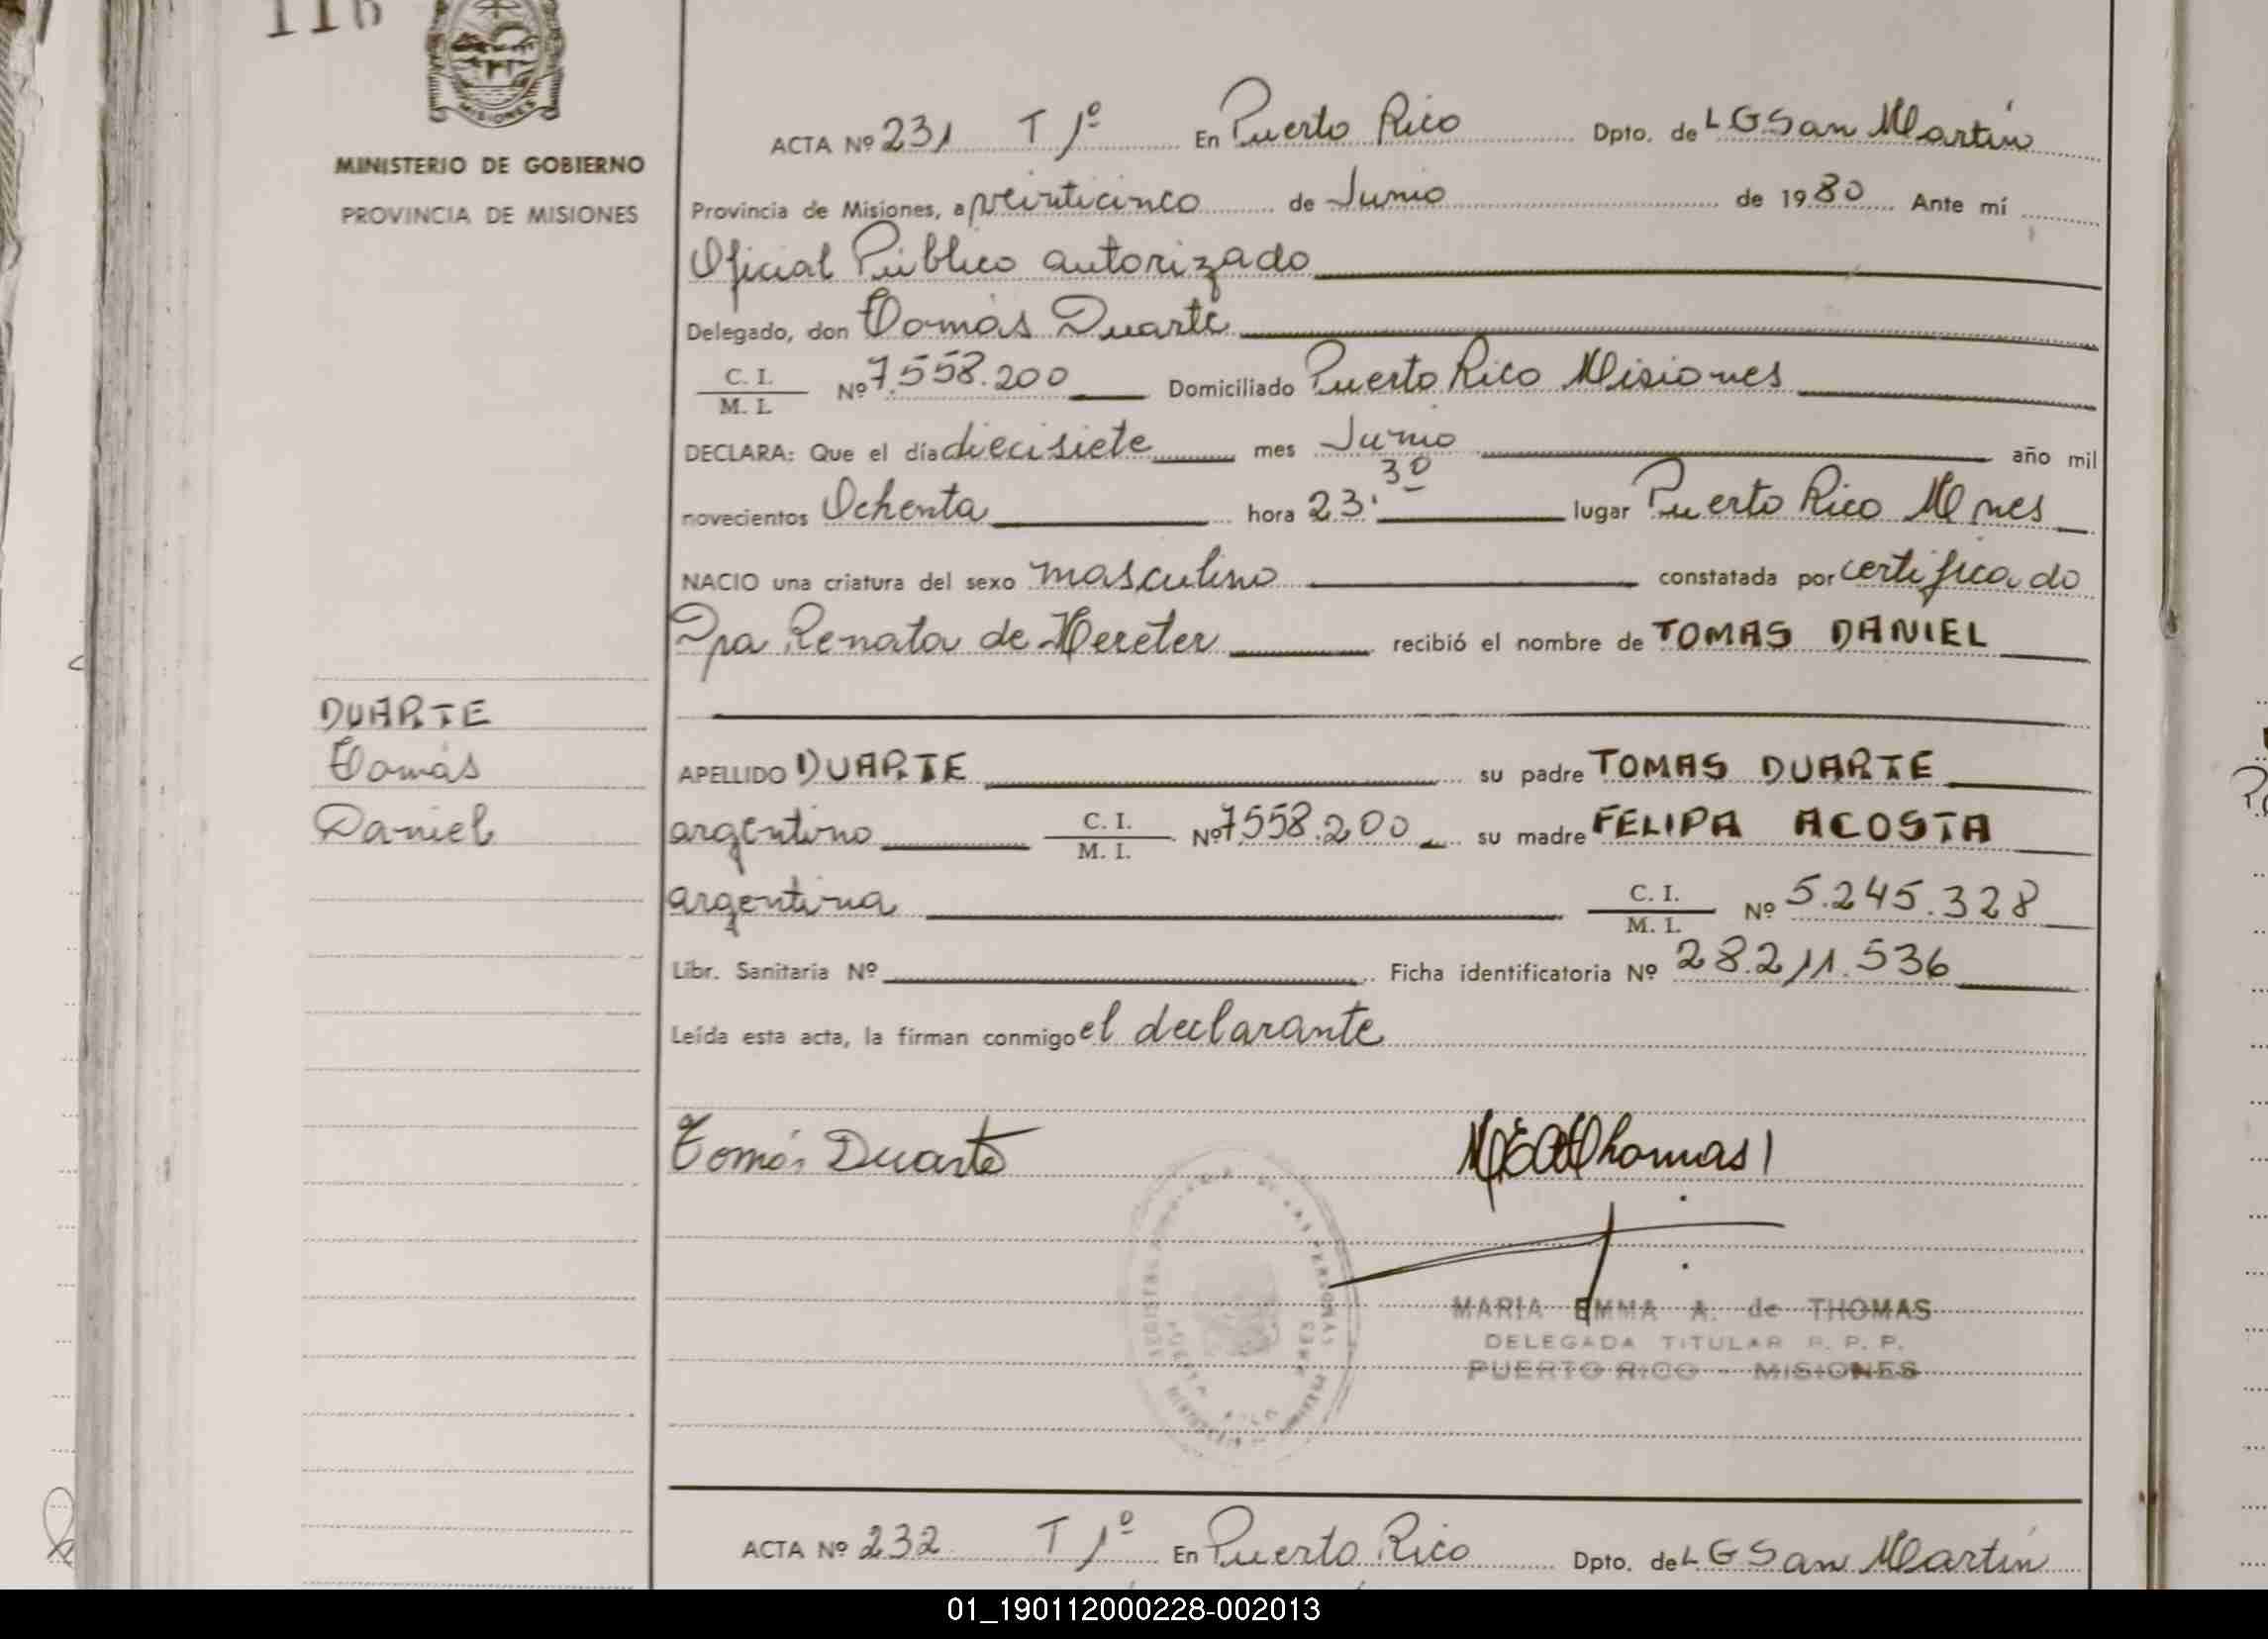 116
MISIONES
MINISTERIO DE GOBIERNO
PROVINCIA DE MISIONES
ACTA Nº 231 T 1º En Puerto Rico Dpto. de L G San Martín
Provincia de Misiones, a veinticinco de Junio de 1980 Ante mí
Oficial Público autorizado
Delegado, don Tomás Duarte
C. I. / M. I. Nº 7.558.200 Domiciliado Puerto Rico Misiones
DECLARA: Que el día diecisiete mes Junio año mil
novecientos Ochenta hora 23.30 lugar Puerto Rico Mnes
NACIO una criatura del sexo masculino constatada por certificado
Dra Renata de Hereter recibió el nombre de TOMAS DANIEL
DUARTE
Tomás
Daniel
APELLIDO DUARTE su padre TOMAS DUARTE
argentino C. I. / M. I. Nº 7558.200 su madre FELIPA ACOSTA
argentina C. I. / M. I. Nº 5.245.328
Libr. Sanitaria Nº Ficha identificatoria Nº 28.211.536
Leída esta acta, la firman conmigo el declarante
Tomás Duarte
MARIA EMMA A. de THOMAS
DELEGADA TITULAR R. P. P.
PUERTO RICO - MISIONES
ACTA Nº 232 T 1º En Puerto Rico Dpto. de L G San Martín
01_190112000228-002013